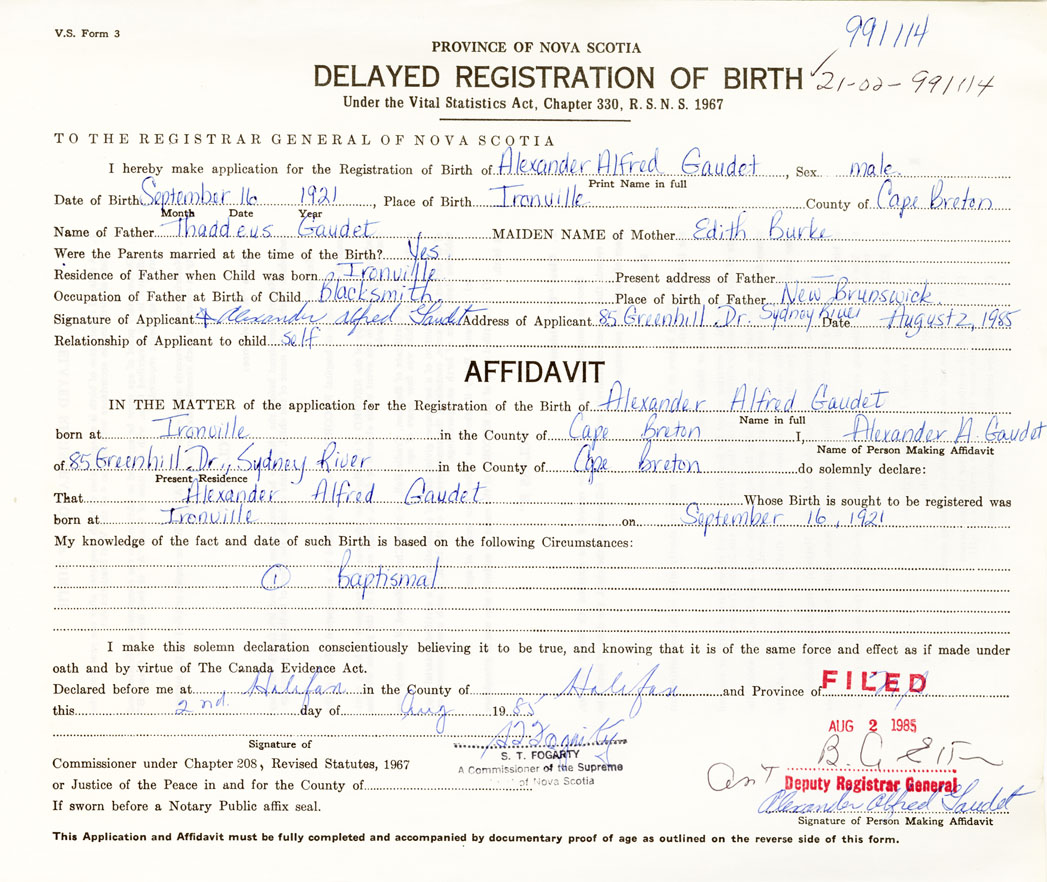 V.S. Form 3
991114
PROVINCE OF NOVA SCOTIA
DELAYED REGISTRATION OF BIRTH
21-02-991114
Under the Vital Statistics Act, Chapter 330, R. S. N. S. 1967
TO THE REGISTRAR GENERAL OF NOVA SCOTIA
I hereby make application for the Registration of Birth of Alexander Alfred Gaudet, Sex male
Print Name in full
Date of Birth September 16 1921, Place of Birth Ironville County of Cape Breton
Month Date Year
Name of Father Thaddeus Gaudet, MAIDEN NAME of Mother Edith Burke
Were the Parents married at the time of the Birth? Yes
Residence of Father when Child was born Ironville Present address of Father
Occupation of Father at Birth of Child Blacksmith Place of birth of Father New Brunswick
Signature of Applicant Alexander Alfred Gaudet Address of Applicant 85 Greenhill Dr. Sydney River Date August 2, 1985
Relationship of Applicant to child self
AFFIDAVIT
IN THE MATTER of the application for the Registration of the Birth of Alexander Alfred Gaudet
Name in full
born at Ironville in the County of Cape Breton I, Alexander A. Gaudet
Name of Person Making Affidavit
of 85 Greenhill Dr., Sydney River in the County of Cape Breton do solemnly declare:
Present Residence
That Alexander Alfred Gaudet Whose Birth is sought to be registered was
born at Ironville on September 16, 1921
My knowledge of the fact and date of such Birth is based on the following Circumstances:
① Baptismal
I make this solemn declaration conscientiously believing it to be true, and knowing that it is of the same force and effect as if made under
oath and by virtue of The Canada Evidence Act.
Declared before me at Halifax in the County of Halifax and Province of
FILED
this 2nd. day of Aug 1985
AUG 2 1985
Signature of
S. T. FOGARTY
Commissioner under Chapter 208, Revised Statutes, 1967
A Commissioner of the Supreme
or Justice of the Peace in and for the County of
of Nova Scotia
Deputy Registrar General
If sworn before a Notary Public affix seal.
Alexander Alfred Gaudet
Signature of Person Making Affidavit
This Application and Affidavit must be fully completed and accompanied by documentary proof of age as outlined on the reverse side of this form.